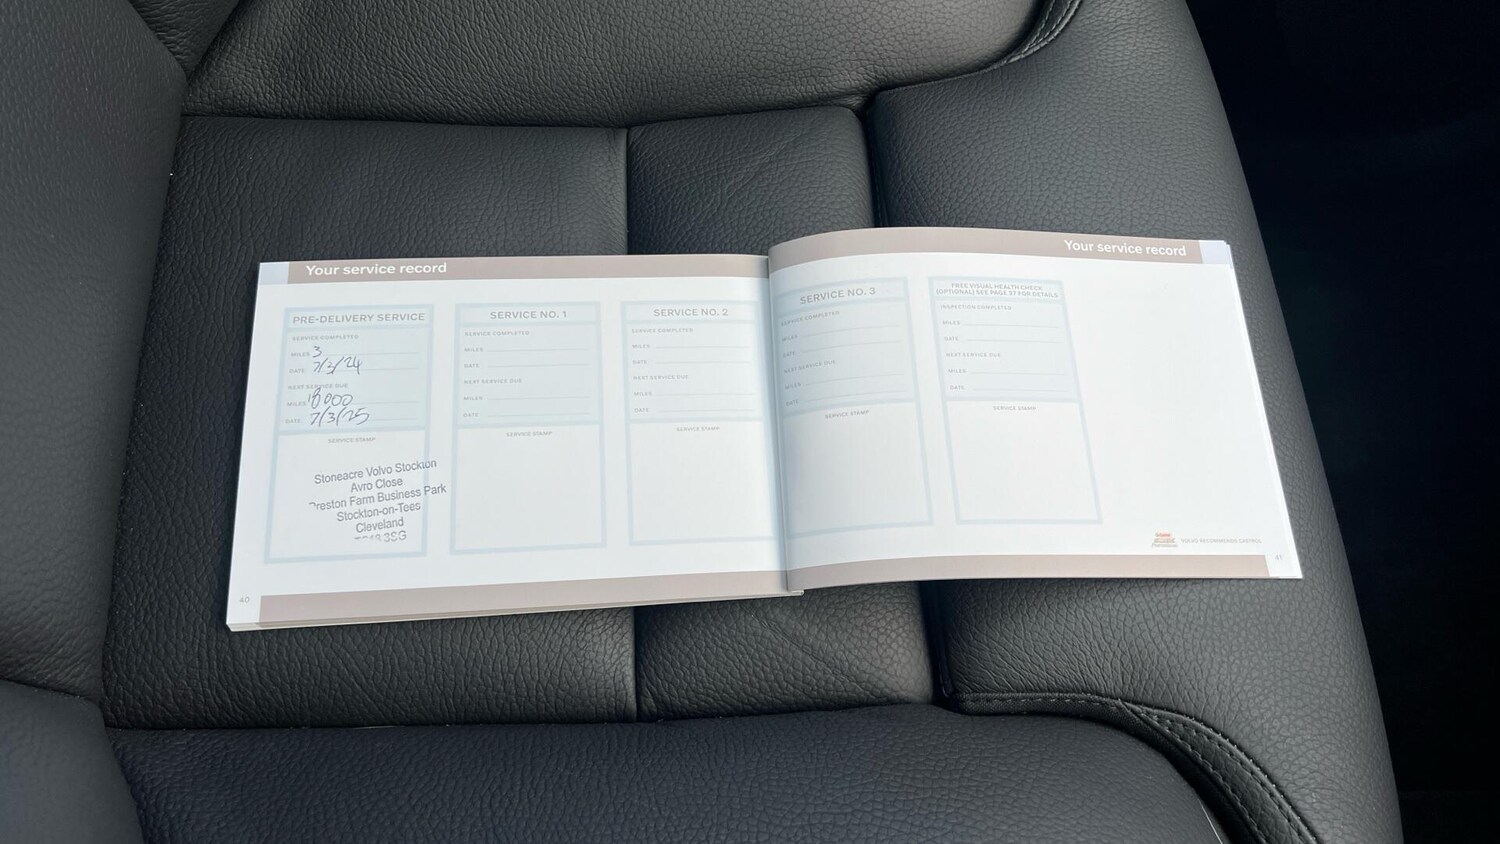 Your service record
PRE-DELIVERY SERVICE
SERVICE COMPLETED
MILES 3
DATE 7/3/24
NEXT SERVICE DUE
MILES 18000
DATE 7/3/25
SERVICE STAMP
Stoneacre Volvo Stockton
Avro Close
Preston Farm Business Park
Stockton-on-Tees
Cleveland
3SG
40
SERVICE NO. 1
SERVICE COMPLETED
MILES
DATE
NEXT SERVICE DUE
MILES
DATE
SERVICE STAMP
SERVICE NO. 2
SERVICE COMPLETED
MILES
DATE
NEXT SERVICE DUE
MILES
DATE
SERVICE STAMP
Your service record
SERVICE NO. 3
SERVICE COMPLETED
MILES
DATE
NEXT SERVICE DUE
MILES
DATE
SERVICE STAMP
FREE VISUAL HEALTH CHECK
(OPTIONAL) SEE PAGE 37 FOR DETAILS
INSPECTION COMPLETED
MILES
DATE
NEXT SERVICE DUE
MILES
DATE
SERVICE STAMP
VOLVO RECOMMENDS CASTROL
41